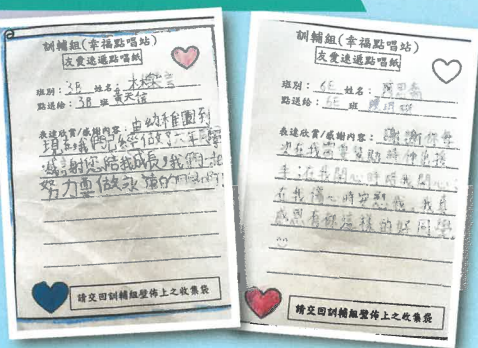 訓輔組(幸福點唱站)
友愛速遞點唱紙
班別：3B 姓名：林樂
點送給：3B 班 黃天信
表達欣賞/感謝內容：由幼稚園到
現在我們已經做了六年同學
感謝您陪我成長，我們一起
努力要做永遠的同學
請交回訓輔組壁佈上之收集袋
訓輔組(幸福點唱站)
友愛速遞點唱紙
班別：6E 姓名：
點送給：6E 班
表達欣賞/感謝內容：謝謝你每
次在我需要幫助時伸出援
手；在我開心時陪我開心；
在我傷心時安慰我。我真
感恩有你這樣的好同學。
請交回訓輔組壁佈上之收集袋